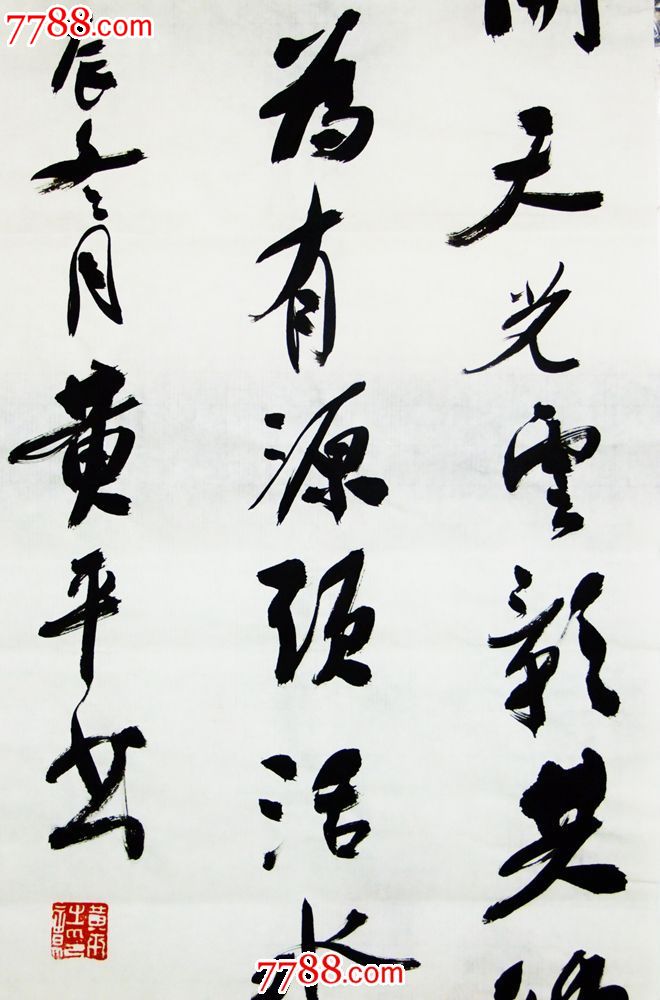 7788.com
7788.com
開天光雲影共
為有源頭活水
辰冬月黄平书
黄平
7788.com